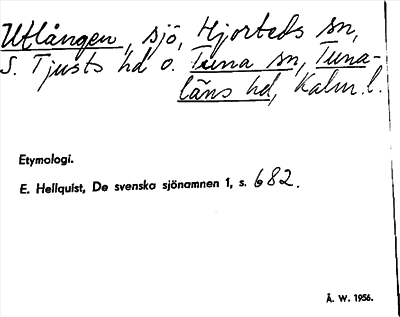 Utlången, sjö, Hjorteds sn,
S. Tjusts hd o. Tuna sn, Tuna-
läns hd, Kalm. l.
Etymologi.
E. Hellquist, De svenska sjönamnen 1, s. 682.
Å. W. 1956.